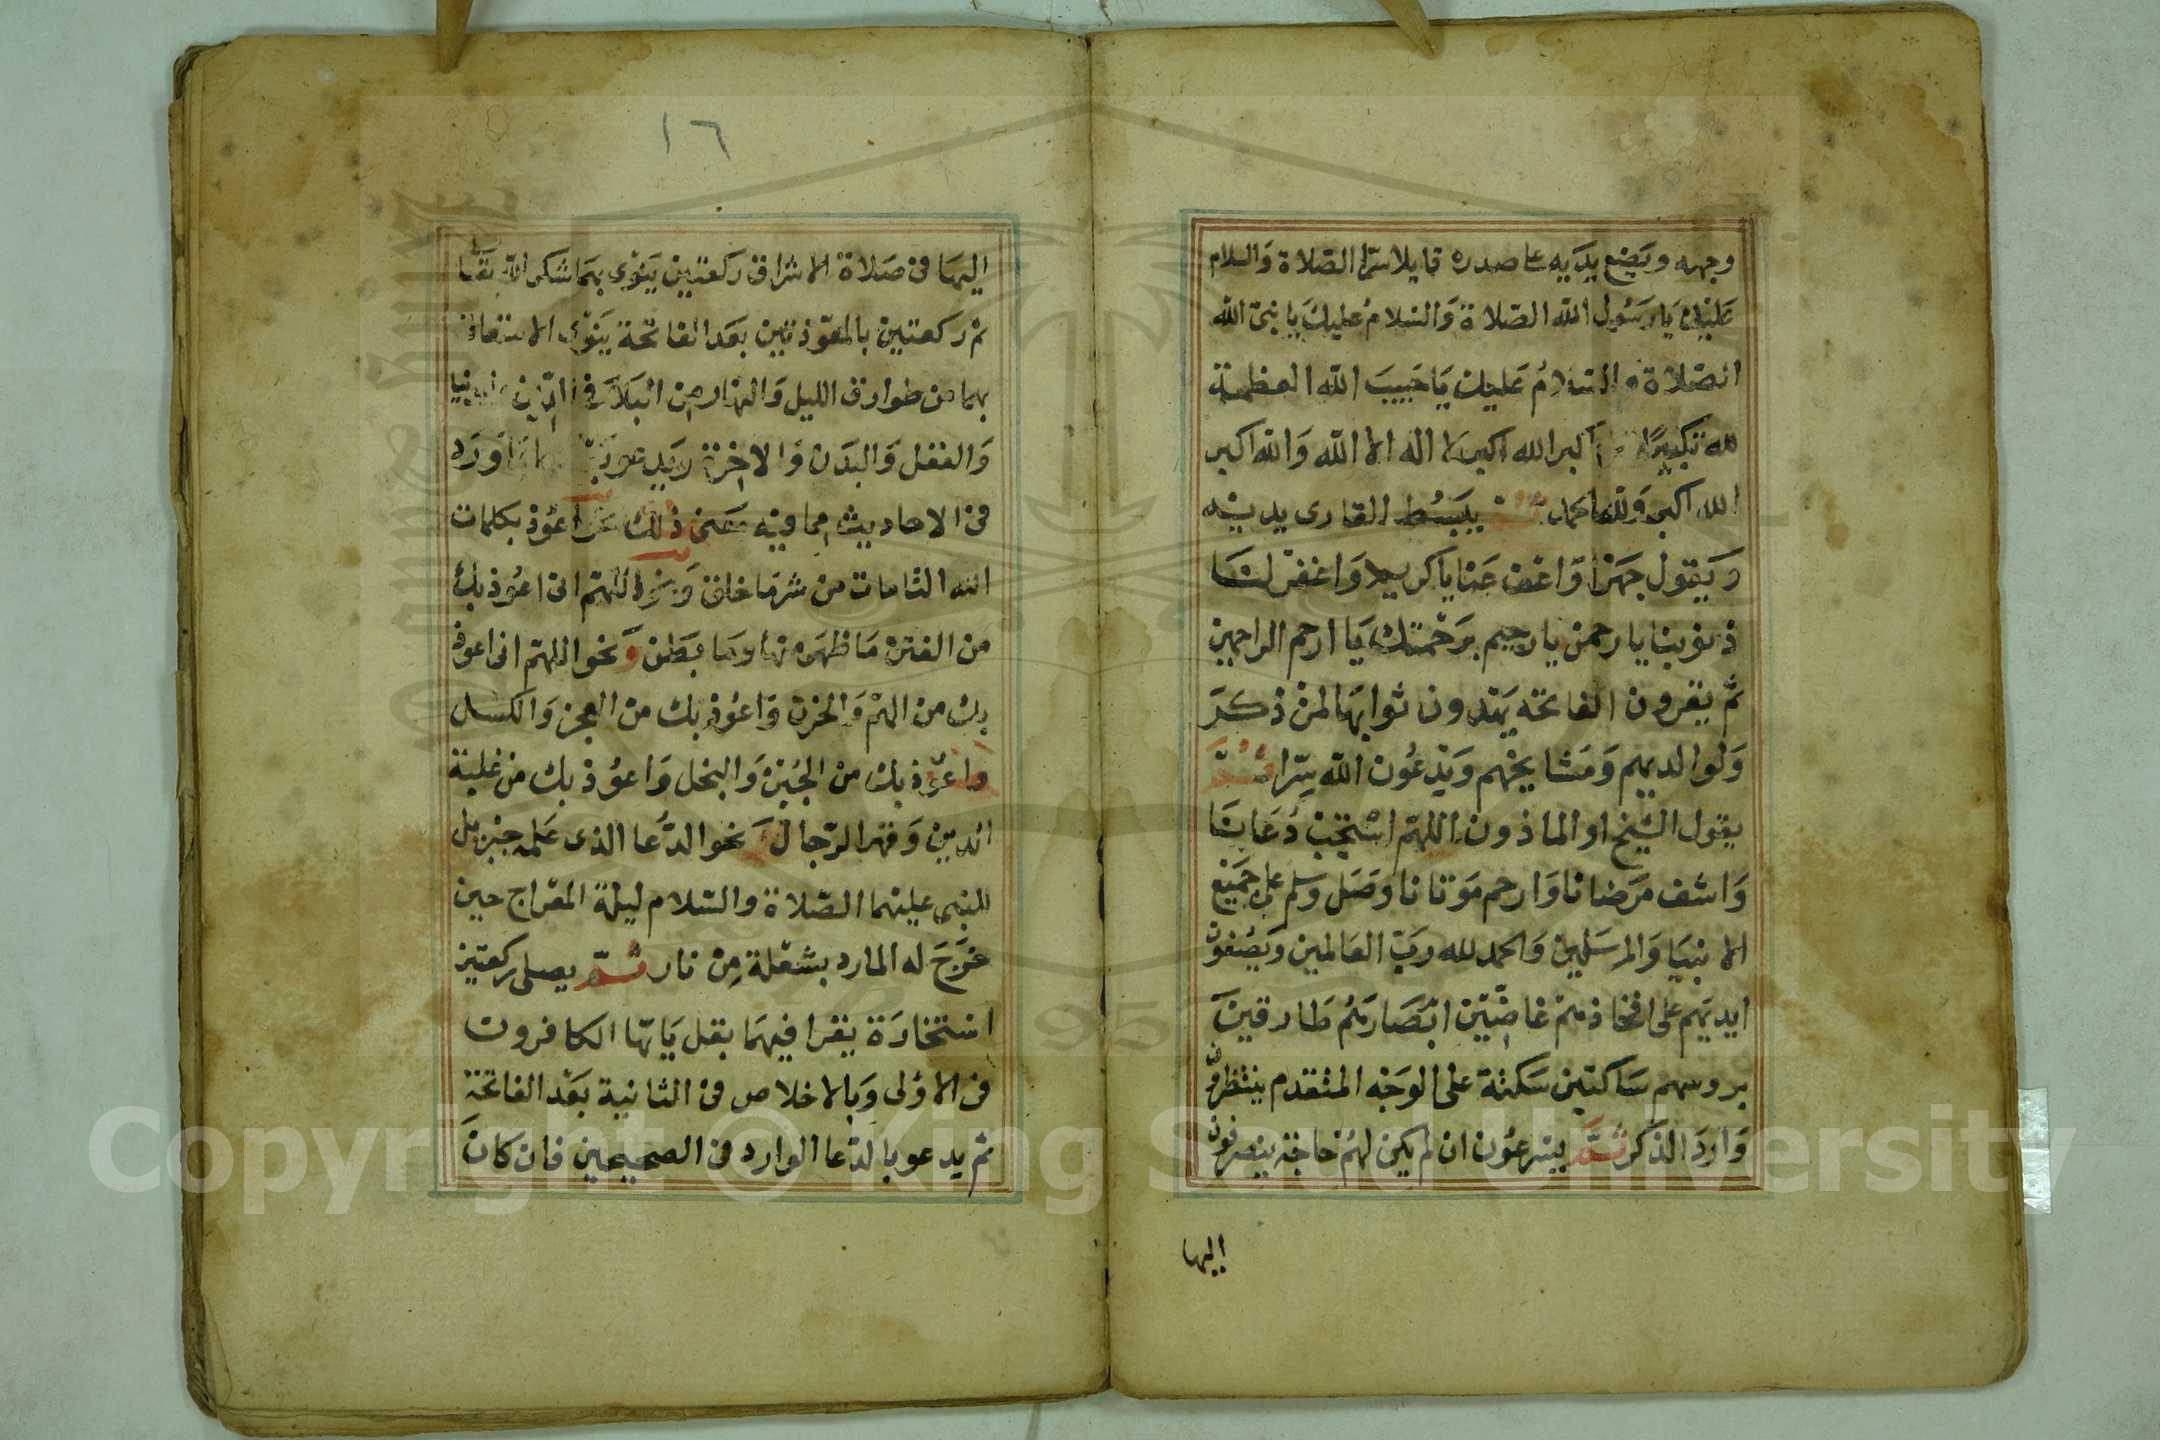 وجهه ويضع يديه على صدره قايلا سرّا الصّلاة والسلام
عليك يا رسول الله الصّلاة والسّلام عليك يا نبيّ الله
الصّلاة والسّلامُ عليك يا حبيبَ الله العظمة
لله تكبيرًا الله اكبر الله اكبر لا اله الا الله والله اكبر
الله اكبر ولله الحمد ثم يبسُط القارى يديه
ويقول جهرًا واعف عنا يا كريم واغفر لنا
ذنوبنا يا رحمن يا رحيم برحمتك يا ارحم الراحمين
ثم يقرون الفاتحة يهدون ثوابها لمن ذكر
ولوالديهم ومشايخهم ويدعُون الله سِرّا ثمّ
يقول الشيخ او الماذون اللهمّ استجب دُعَانا
واشف مرضانا وارحم موتانا وصل وسلم على جميع
الانبيا والمرسلين والحمد لله ربّ العالمين ويضعون
ايديهم على افخاذهم غاضّين ابصارهُم طارقين
بروسهم ساكتين سكتة على الوجه المتقدم ينتظرون
وارد الذكر ثمّ يسرعُون ان لم يكن لهُم حاجة ينصرفون
اليها
١٦
اليها فى صلاة الاشراق ركعتين ينوى بهما شكر الله تعالى
ثم ركعتين بالمعوّذتين بعد الفاتحة ينوى الاستعاذة
بهما من طوارق الليل والنهار من البلا فى الدّين والدنيا
والعقل والبدن والاخرة ويدعو بما ورد
فى الاحاديث مما فيه معنى ذلك نحو اعوذ بكلمات
الله التامات من شر ما خلق ونحو اللهمّ انى اعُوذ بك
من الفتن ما ظهر منها وما بطن ونحو اللهمّ انى اعوذ
بك من الهمّ والحزن واعُوذ بك من العجز والكسل
واعُوذ بك من الجُبن والبخل واعوُذ بك من غلبة
الدين وقهر الرّجال ونحو الدُّعا الذى علمه جبريل
للنبى عليهما الصّلاة والسّلام ليلة المعراج حين
خرج له المارد بشعلة من نار ثمّ يصلى ركعتين
استخارة يقرا فيهما بقل يايّها الكافرون
فى الاولى وبالاخلاص فى الثانية بعد الفاتحة
ثم يدعو بالدّعا الوارد فى الصحيحين فان كان
Copyright © King Saud University